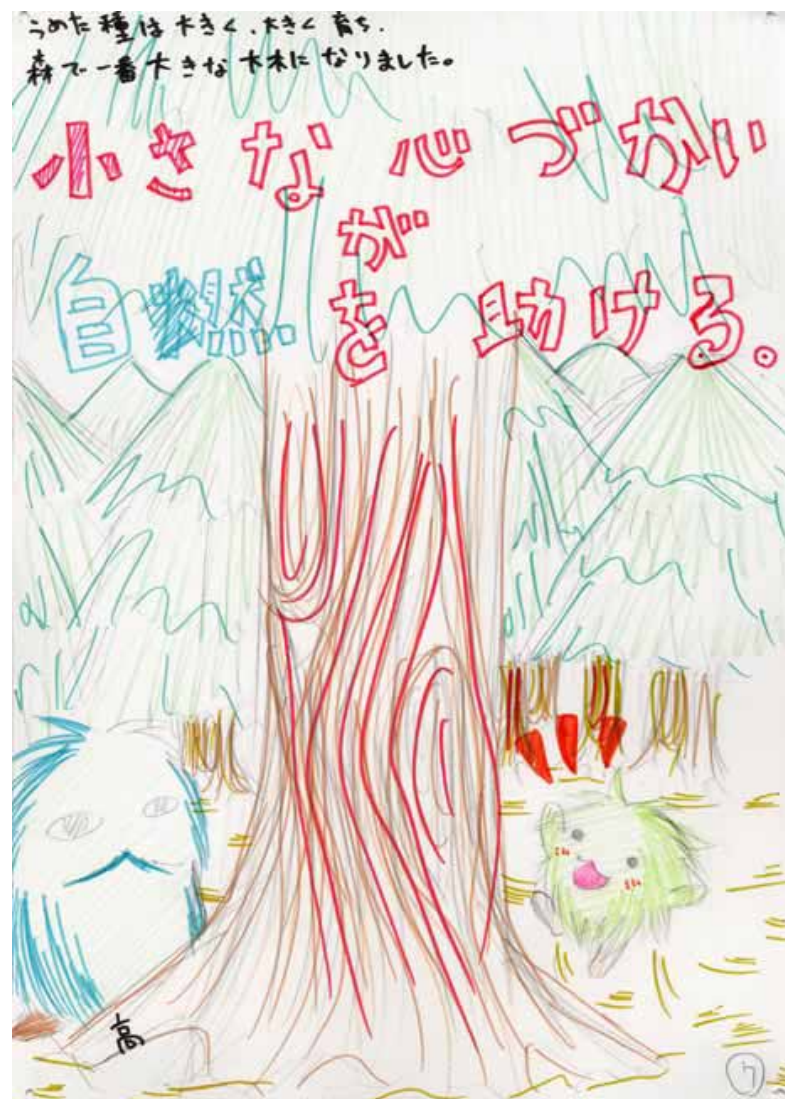 うめた種は大きく、大きく育ち、
森で一番大きな大木になりました。
小さな心づかい
が
自然を助ける。
高
7